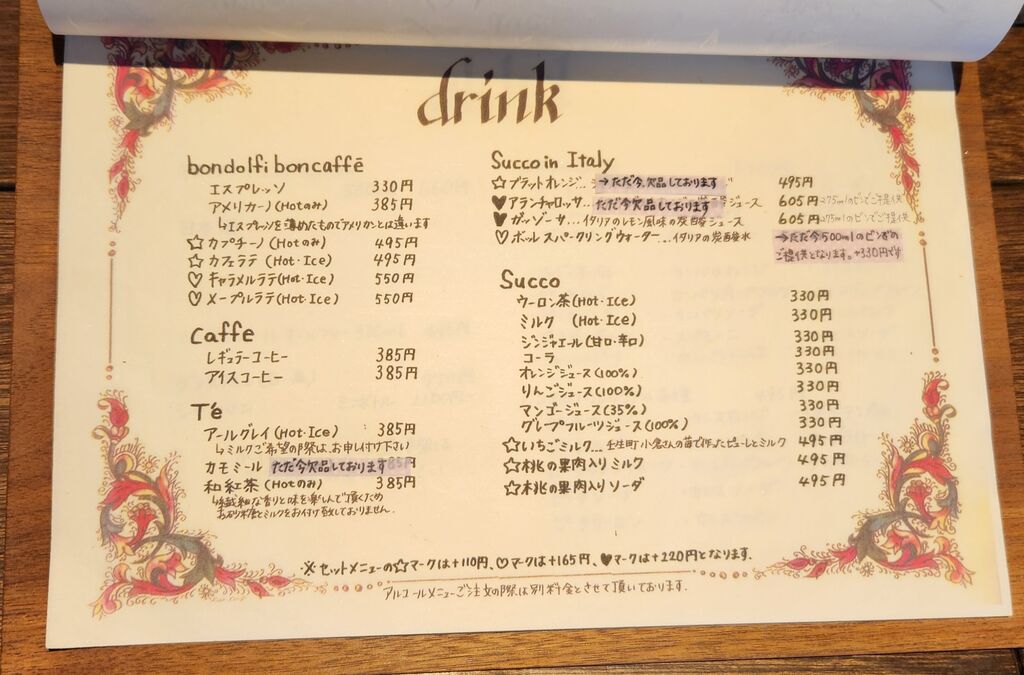 drink
bondolfi boncaffē
エスプレッソ 330円
アメリカーノ(Hotのみ) 385円
↳エスプレッソを薄めたものでアメリカンとは違います
☆カプチーノ(Hotのみ) 495円
☆カフェラテ(Hot・Ice) 495円
♡キャラメルラテ(Hot・Ice) 550円
♡メープルラテ(Hot・Ice) 550円
Caffe
レギュラーコーヒー 385円
アイスコーヒー 385円
T'e
アールグレイ(Hot・Ice) 385円
↳ミルクご希望の際は、お申し付け下さい
カモミール ただ今欠品しております 385円
和紅茶(Hotのみ) 385円
↳繊細な香りと味を楽しんで頂くため
お砂糖とミルクをお付け致しておりません.
Succo in Italy
☆ブラッドオレンジ... →ただ今欠品しております 495円
♥アランチャロッサ... ただ今欠品しております ジュース 605円 275mlのビンでご提供
♥ガッゾーサ...イタリアのレモン風味の炭酸ジュース 605円 275mlのビンでご提供
♡ボッレ スパークリングウォーター...イタリアの炭酸水
→ただ今500mlのビンでの
ご提供となります。+330円です
Succo
ウーロン茶(Hot・Ice) 330円
ミルク (Hot・Ice) 330円
ジンジャエール(甘口・辛口) 330円
コーラ 330円
オレンジジュース(100%) 330円
りんごジュース(100%) 330円
マンゴージュース(35%) 330円
グレープフルーツジュース(100%) 330円
☆いちごミルク...壬生町 小倉さんの苺で作ったピューレとミルク 495円
☆桃の果肉入りミルク 495円
☆桃の果肉入りソーダ 495円
※セットメニューの☆マークは+110円、♡マークは+165円、♥マークは+220円となります.
アルコールメニューご注文の際は別料金とさせて頂いております.